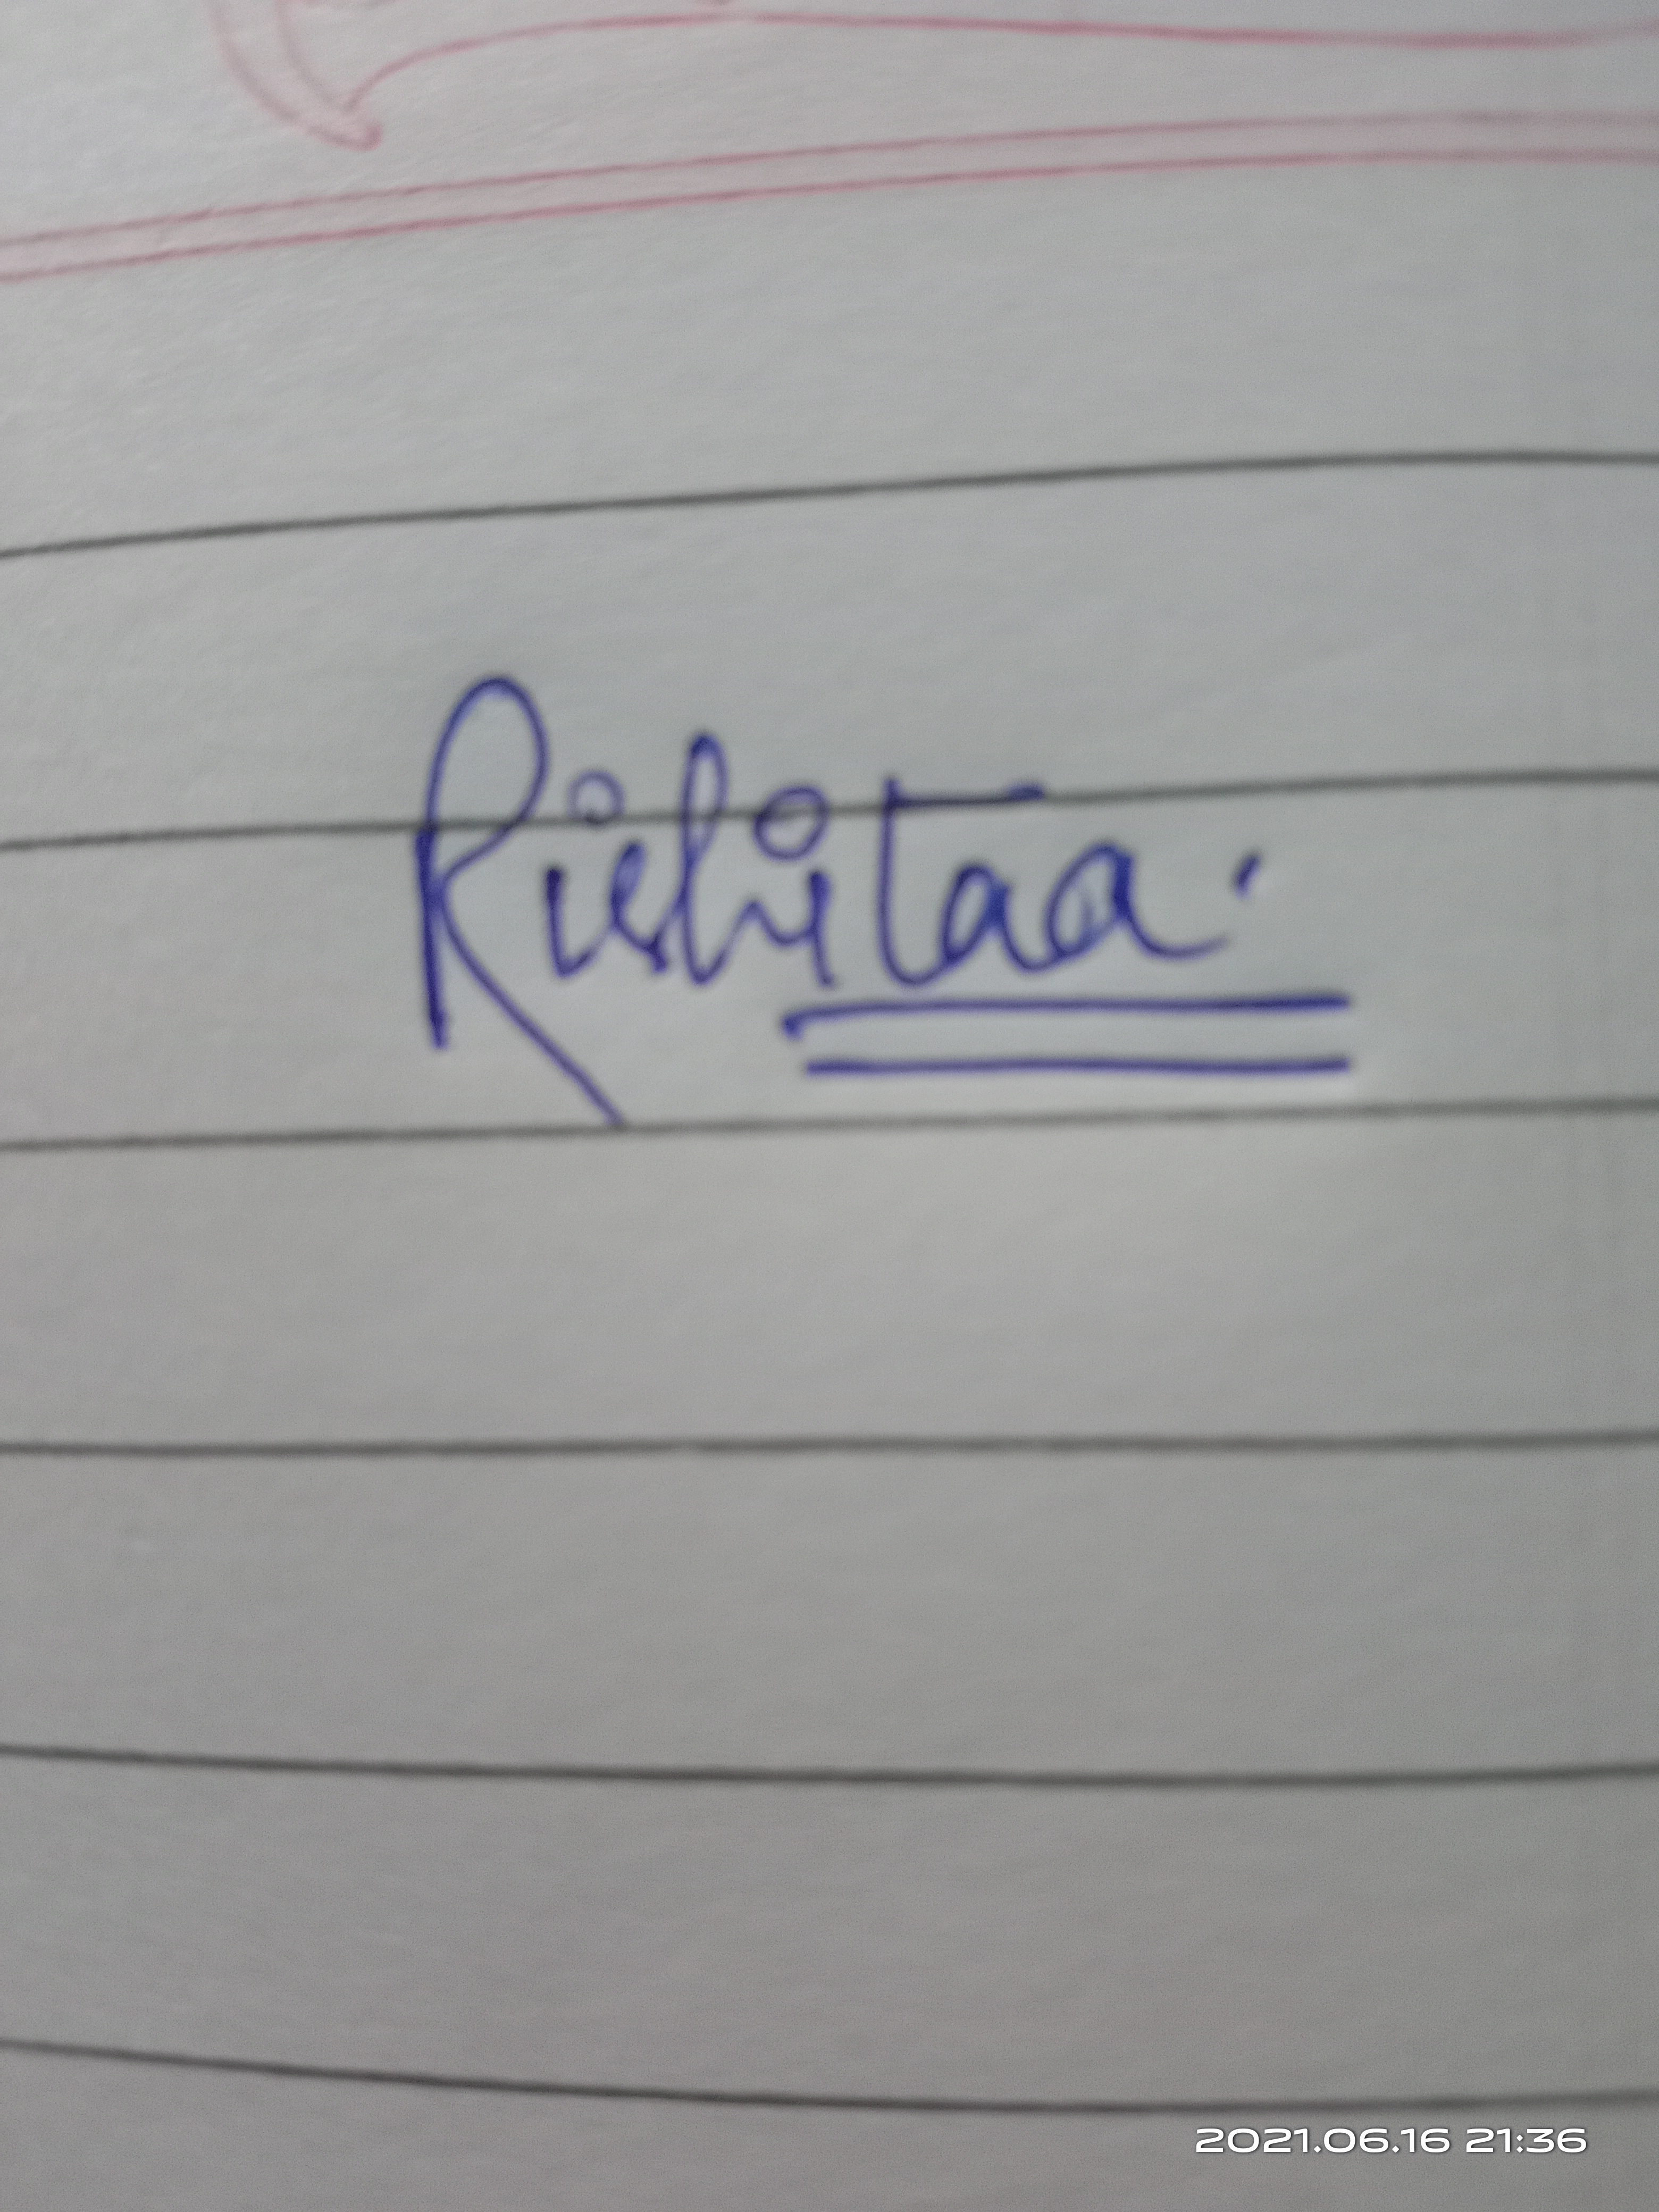 Rishitaa.
2021.06.16 21:36